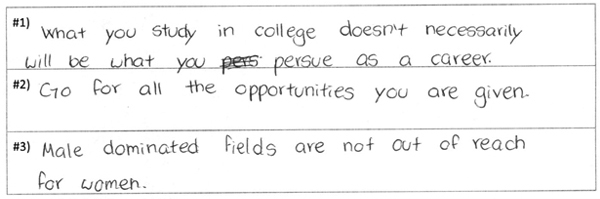 #1) What you study in college doesn't necessarily
will be what you pers persue as a career.
#2) Go for all the opportunities you are given.
#3) Male dominated fields are not out of reach
for women.